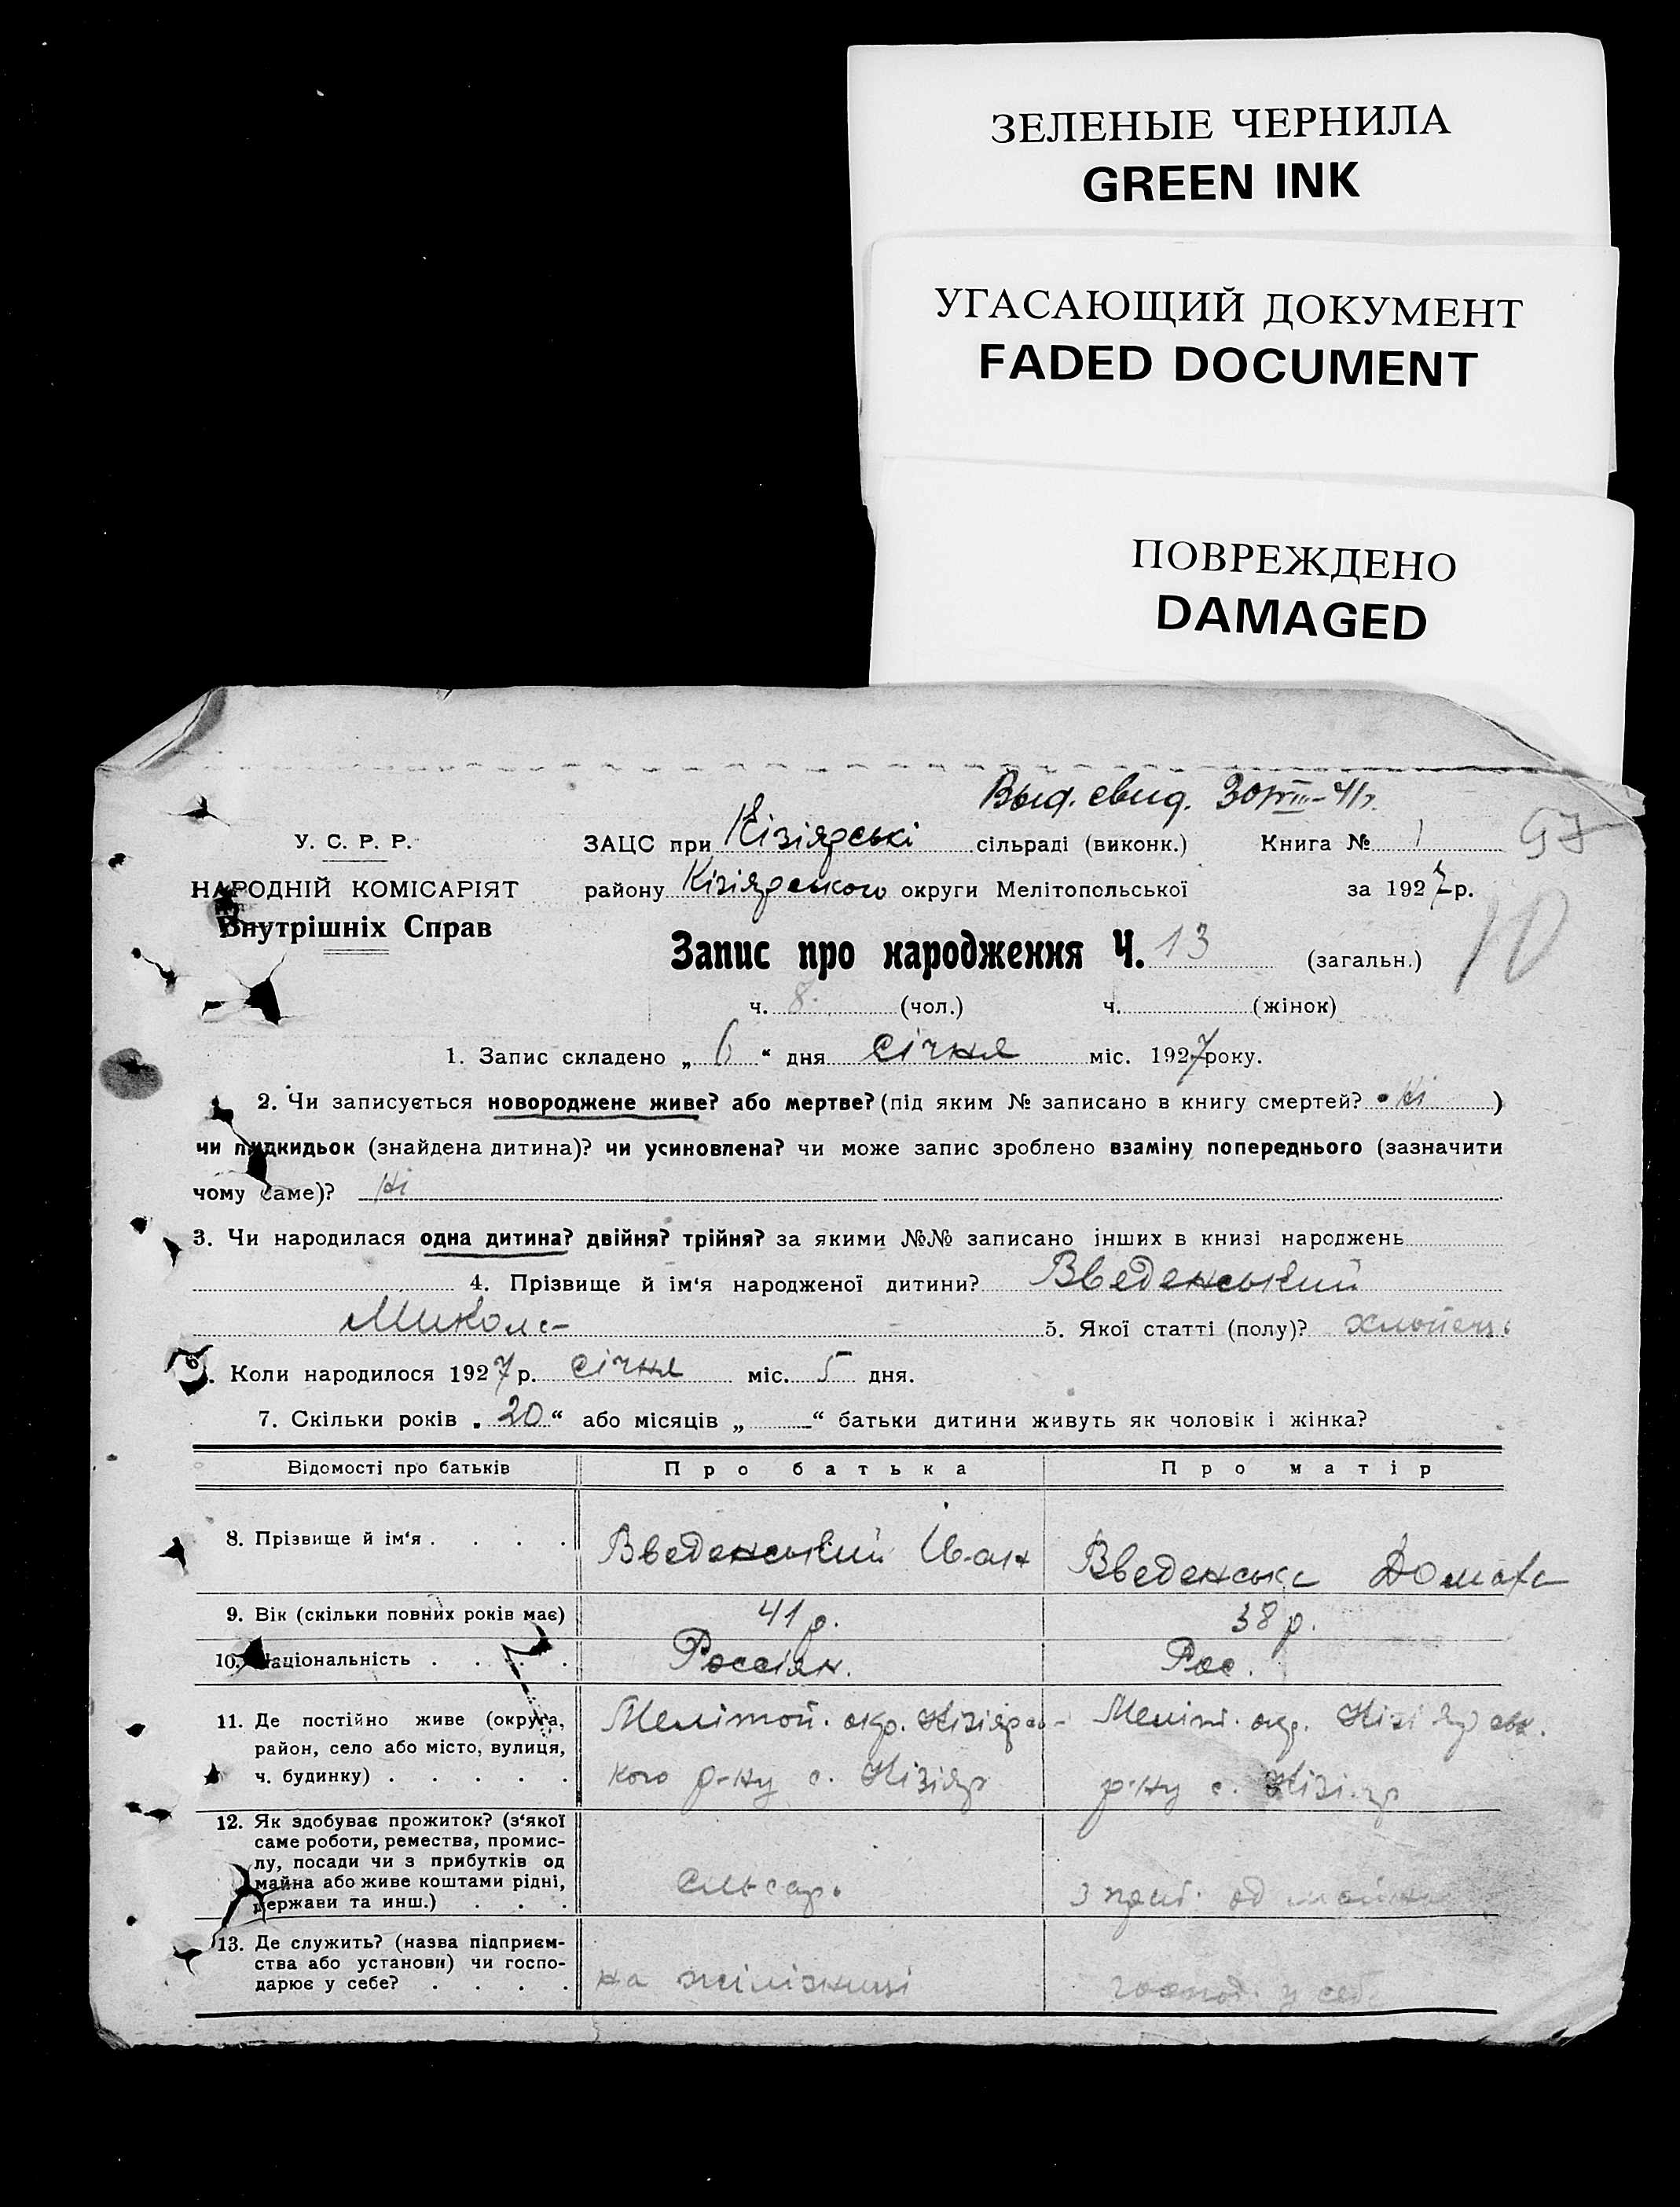 ЗЕЛЕНЫЕ ЧЕРНИЛА
GREEN INK
УГАСАЮЩИЙ ДОКУМЕНТ
FADED DOCUMENT
ПОВРЕЖДЕНО
DAMAGED
Выд. свид. 30/VIII-41г.
У. С. Р. Р.
НАРОДНІЙ КОМІСАРІЯТ
Внутрішніх Справ
ЗАЦС при Кізіярські сільраді (виконк.) Книга № 1
97
району Кізіярського округи Мелітопольської за 1927 р.
10
Запис про народження Ч. 13 (загальн.)
ч. 8. (чол.) ч. (жінок)
1. Запис складено „ 6 “ дня січня міс. 1927 року.
2. Чи записується новороджене живе? або мертве? (під яким № записано в книгу смертей? Ні )
чи підкидьок (знайдена дитина)? чи усиновлена? чи може запис зроблено взаміну попереднього (зазначити
чому саме)? Ні
3. Чи народилася одна дитина? двійня? трійня? за якими №№ записано інших в книзі народжень
4. Прізвище й ім‘я народженої дитини? Введенський
Микола 5. Якої статті (полу)? хлопець
6. Коли народилося 1927 р. січня міс. 5 дня.
7. Скільки років „ 20 “ або місяців „ “ батьки дитини живуть як чоловік і жінка?
Відомості про батьків Про батька Про матір
8. Прізвище й ім‘я . . . . Введенський Іван Введенська Домаха
9. Вік (скільки повних років має) 41 р. 38 р.
10. Національність . . . . Россіян. Рос.
11. Де постійно живе (округа,
район, село або місто, вулиця,
ч. будинку) . . . . .
Мелітоп. окр. Кізіярсь-
кого р-ну с. Кізіяр
Меліт. окр. Кізіярськ.
р-ну с. Кізіяр
12. Як здобуває прожиток? (з‘якої
саме роботи, ремества, промис-
лу, посади чи з прибутків од
майна або живе коштами рідні,
держави та инш.) . . .
слюсарь
з приб. од майна
13. Де служить? (назва підприєм-
ства або установи) чи госпо-
дарює у себе? . . . .
на жілізниці
господ. у себ.